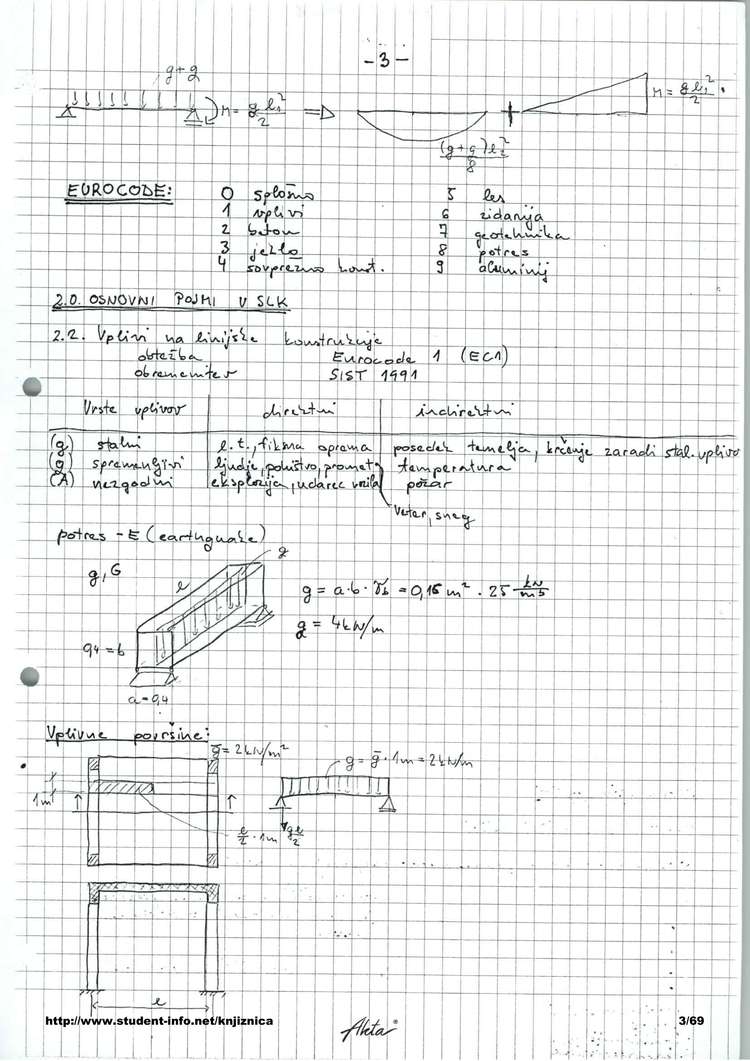 - 3 -
g + q
M = g l₁²/2 ⇒ + M = g l₁²/2
(g+q) l²/8
EUROCODE: 0 splošno 5 les
1 vplivi 6 zidanija
2 beton 7 geotehnika
3 jeklo 8 potres
4 sovprežno konst. 9 aluminij
2.0. OSNOVNI POJMI V SLK
2.2. Vplivi na linijske konstrukcije
obtežba Eurocode 1 (EC1)
obremenitev SIST 1991
Vrste vplivov direktni indirektni
(g) stalni l.t., fiksna oprema posedek temelja, krčenje zaradi stal. vplivov
(q) spremenljivi ljudje, pohištvo, promet temperatura
(A) nezgodni eksplozija, udarec vozila požar
Veter, sneg
potres - E (earthquake)
g
g, G
l
g = a·b·γb = 0,16 m² · 25 kN/m³
g = 4kN/m
0,4 = b
a = 0,4
Vplivne površine:
ḡ = 2kN/m²
g = ḡ · 1m = 2kN/m
1m
l/2 · 1m
gl/2
l
http://www.student-info.net/knjiznica
Akta®
3/69